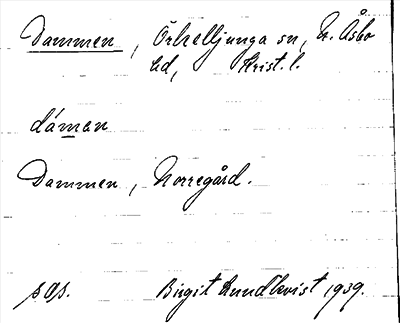 Dammen, Örkelljunga sn, N. Åsbo
hd, Krist. l.
dámen
Dammen, Norregård.
s os.
Birgit Lundkvist 1939.